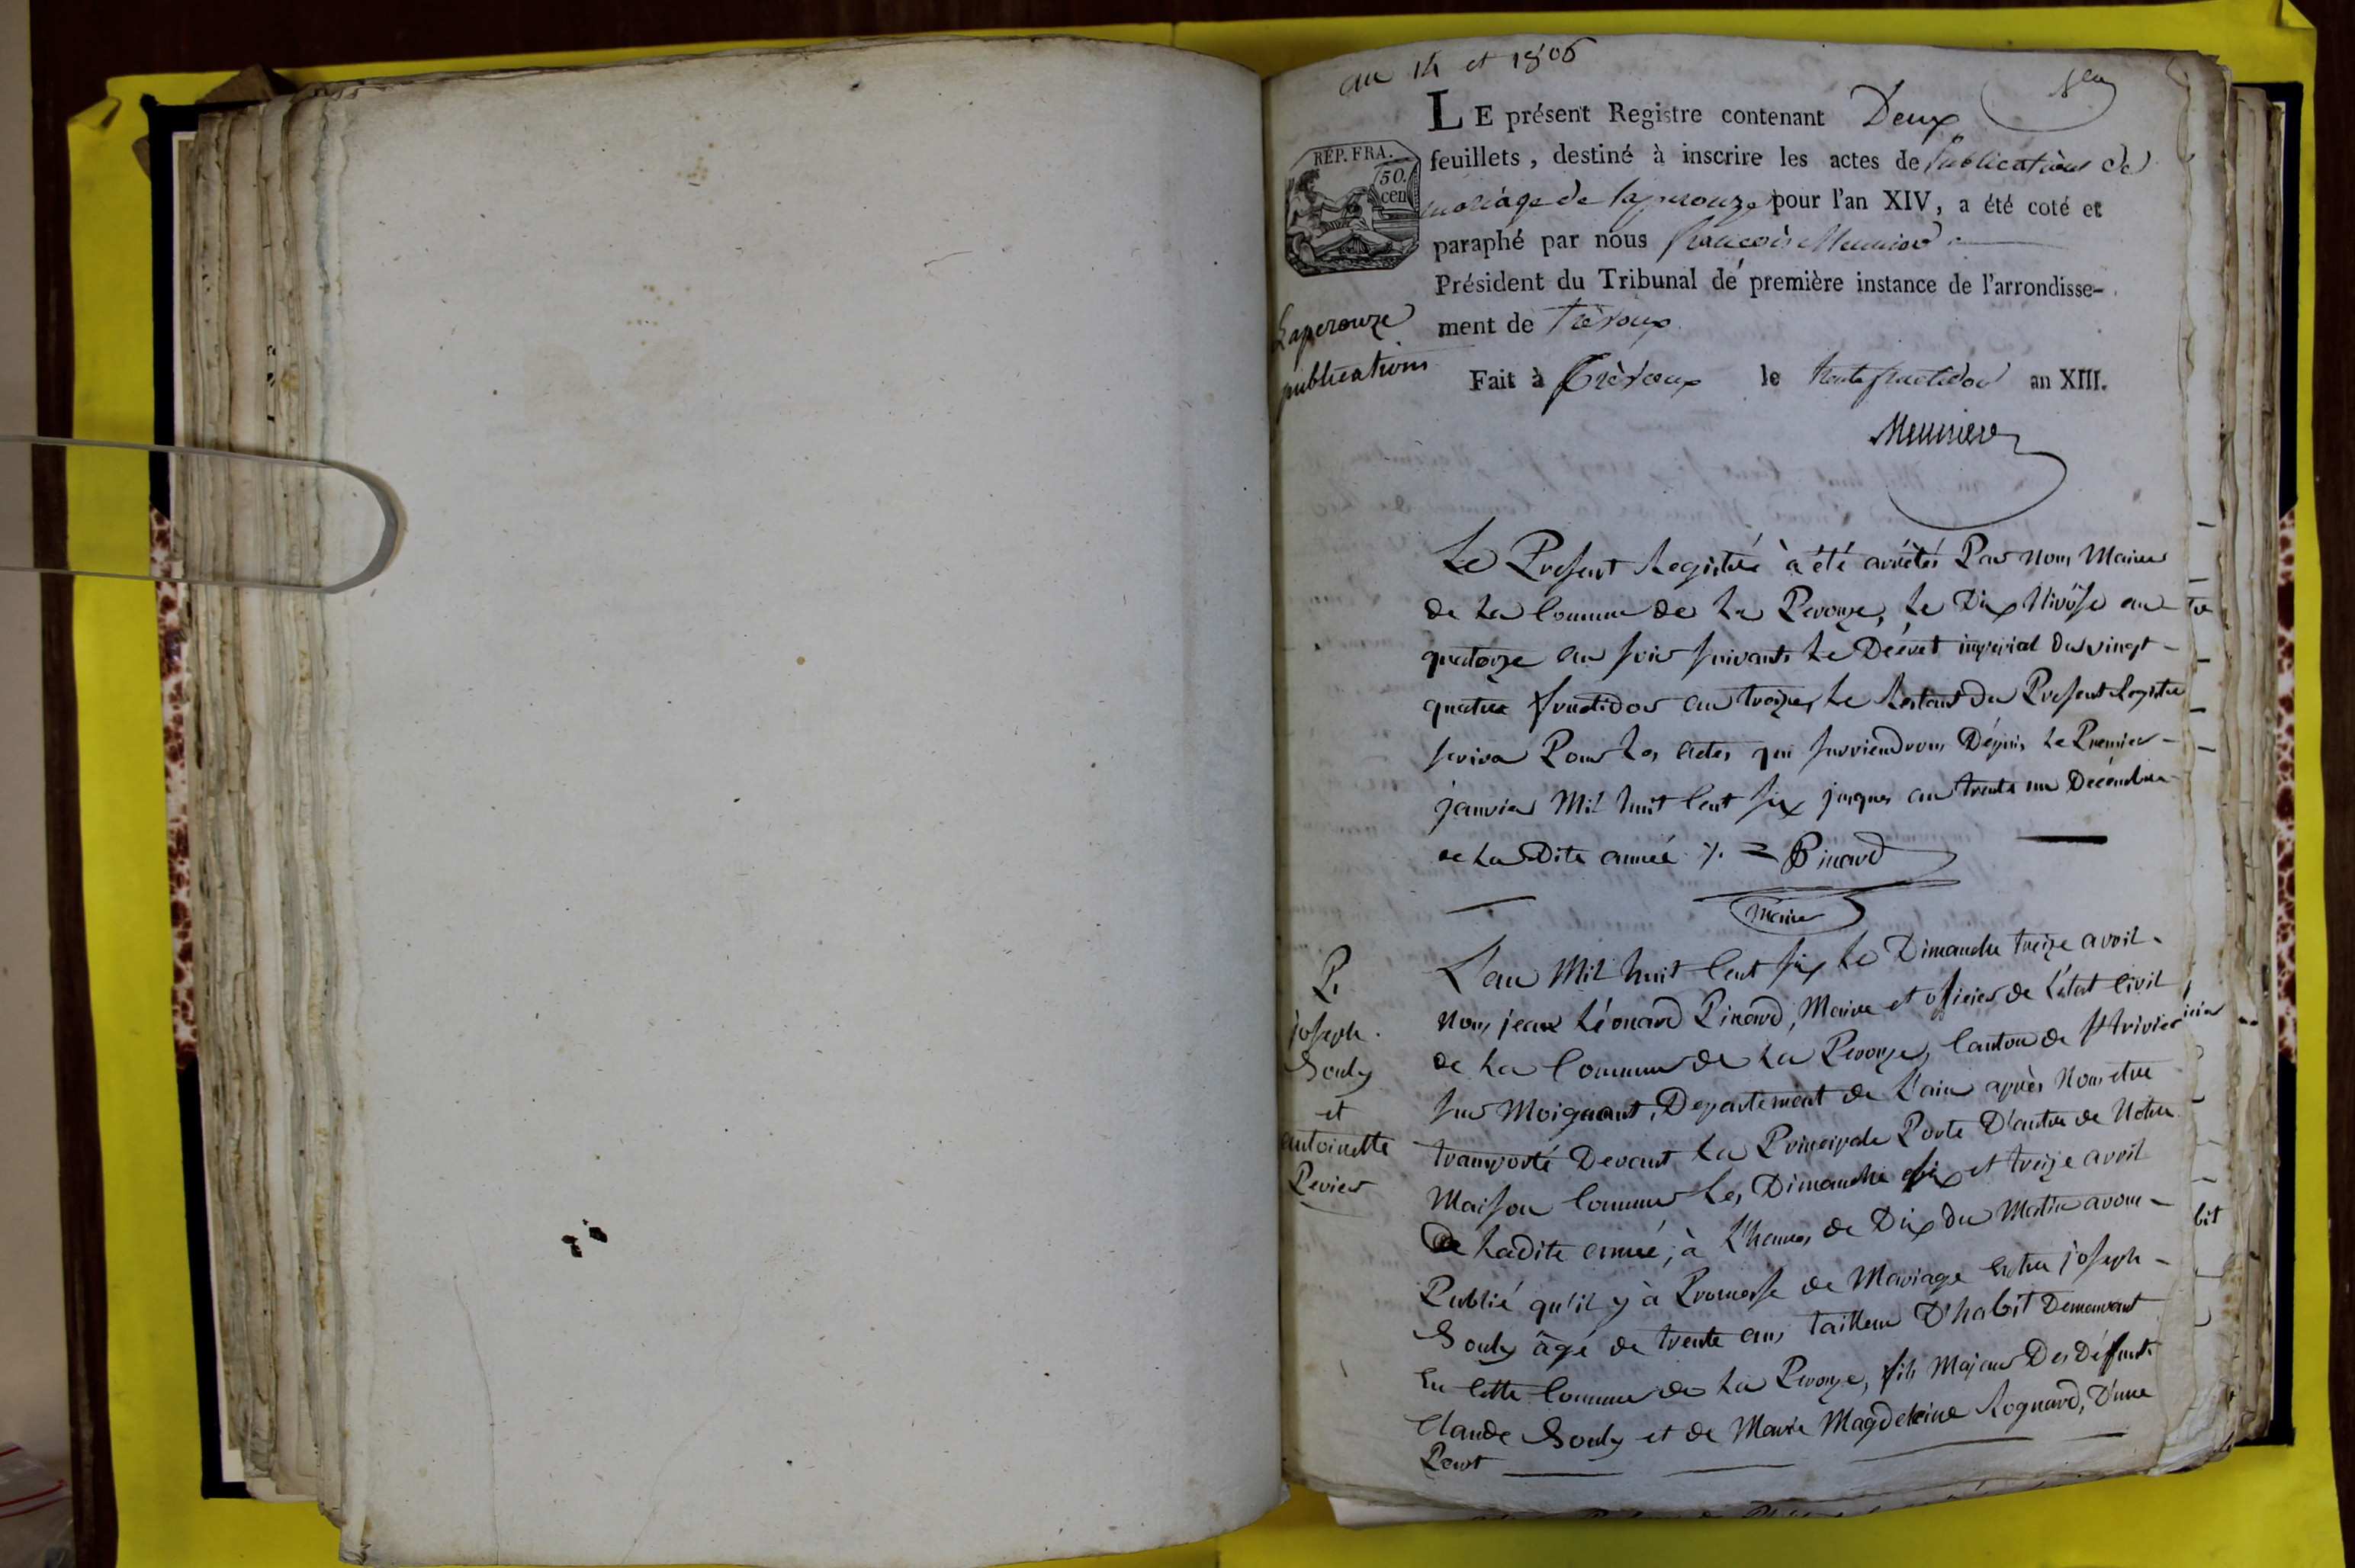 an 14 et 1806
LE présent Registre contenant Deux
feuillets, destiné à inscrire les actes de Publications de
mariage de laperouze pour l'an XIV, a été coté et
paraphé par nous françois Meunier
Président du Tribunal de première instance de l'arrondisse-
ment de Trévoux
Fait à Trévoux le trente fructidor an XIII.
Meunier
REP. FRA.
50.
cen
Laperouze
publications
Le Present Registre à été arrêtés Par nous Maire
de La Commune de La Perouze, Le Dix Nivôse an
quatorze au soir suivant Le Décret impérial du vingt-
quatre fructidor an treize, Le Restant du Present Registre
servira Pour Les actes qui surviendrons Dépuis Le Premier
janvier Mil huit Cent six jusques au trente un Décembre
de La Dite année %. = Pinard
Maire
P.
joseph
Souly
et
antoinette
Perier
L'an Mil huit Cent six Le Dimanche treize avril
nous jean Léonard Pinard, Maire et officier de L'état Civil
de La Commune de La Perouze, Canton de St trivier
sur Moignant, Departement de L'ain après Nous etre
transporté Devant La Principale Porte D'entré de Notre
Maison Commune Les Dimanche six et treize avril
De Ladite année, à L'heures de Dix du Matin avons
Publié qu'il y à Promesse de Mariage Entre joseph
Souly âgé de trente ans tailleur D'habit Demeurant
En Cette Commune de La Perouze, fils Majeur Des Défunts
Claude Souly et de Marie Magdeleine Rognard, D'une
Part